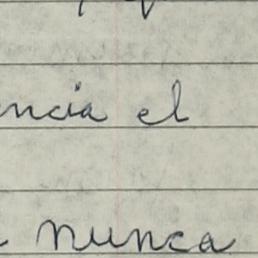 encia el
nunca